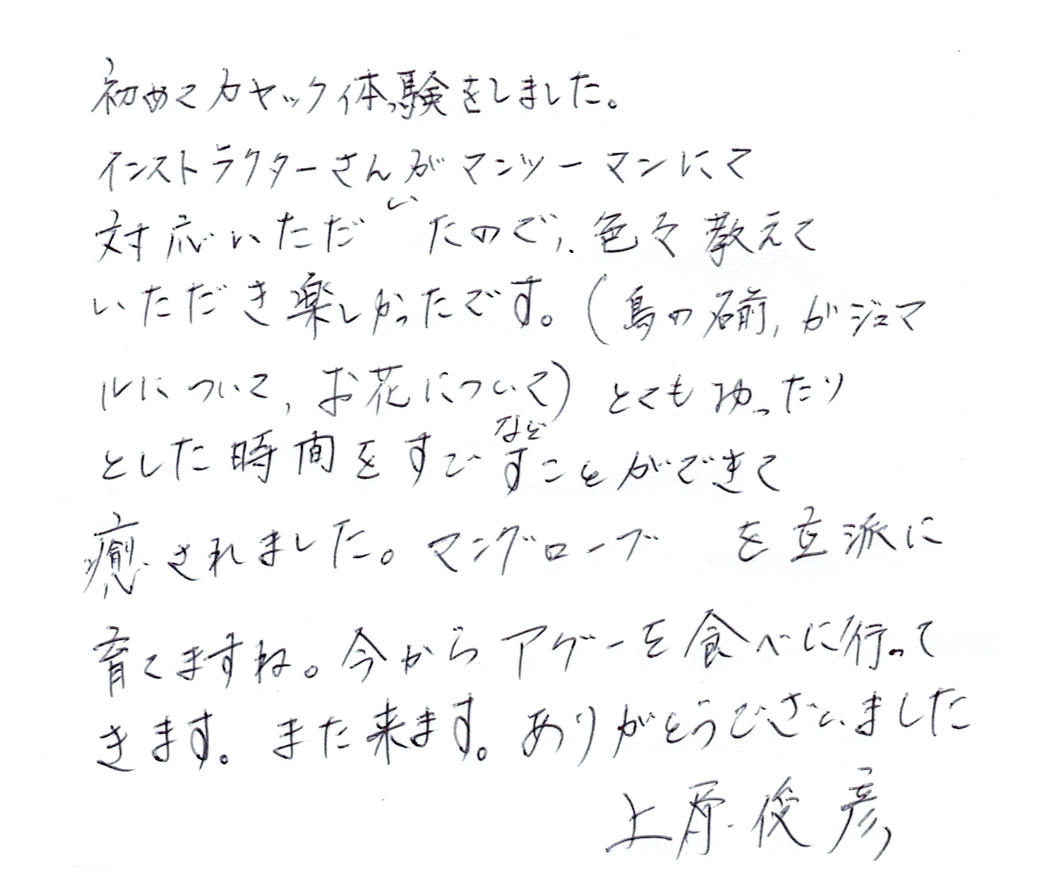 初めてカヤック体験をしました。
インストラクターさんがマンツーマンにて
対応いただいたので、色々教えて
いただき楽しかったです。(島の名前,ガジュマ
ルについて,お花について)とてもゆったり
など
とした時間をすごすことができて
癒されました。マングローブ を立派に
育てますね。今からアグーを食べに行って
きます。また来ます。ありがとうございました
上原俊彦